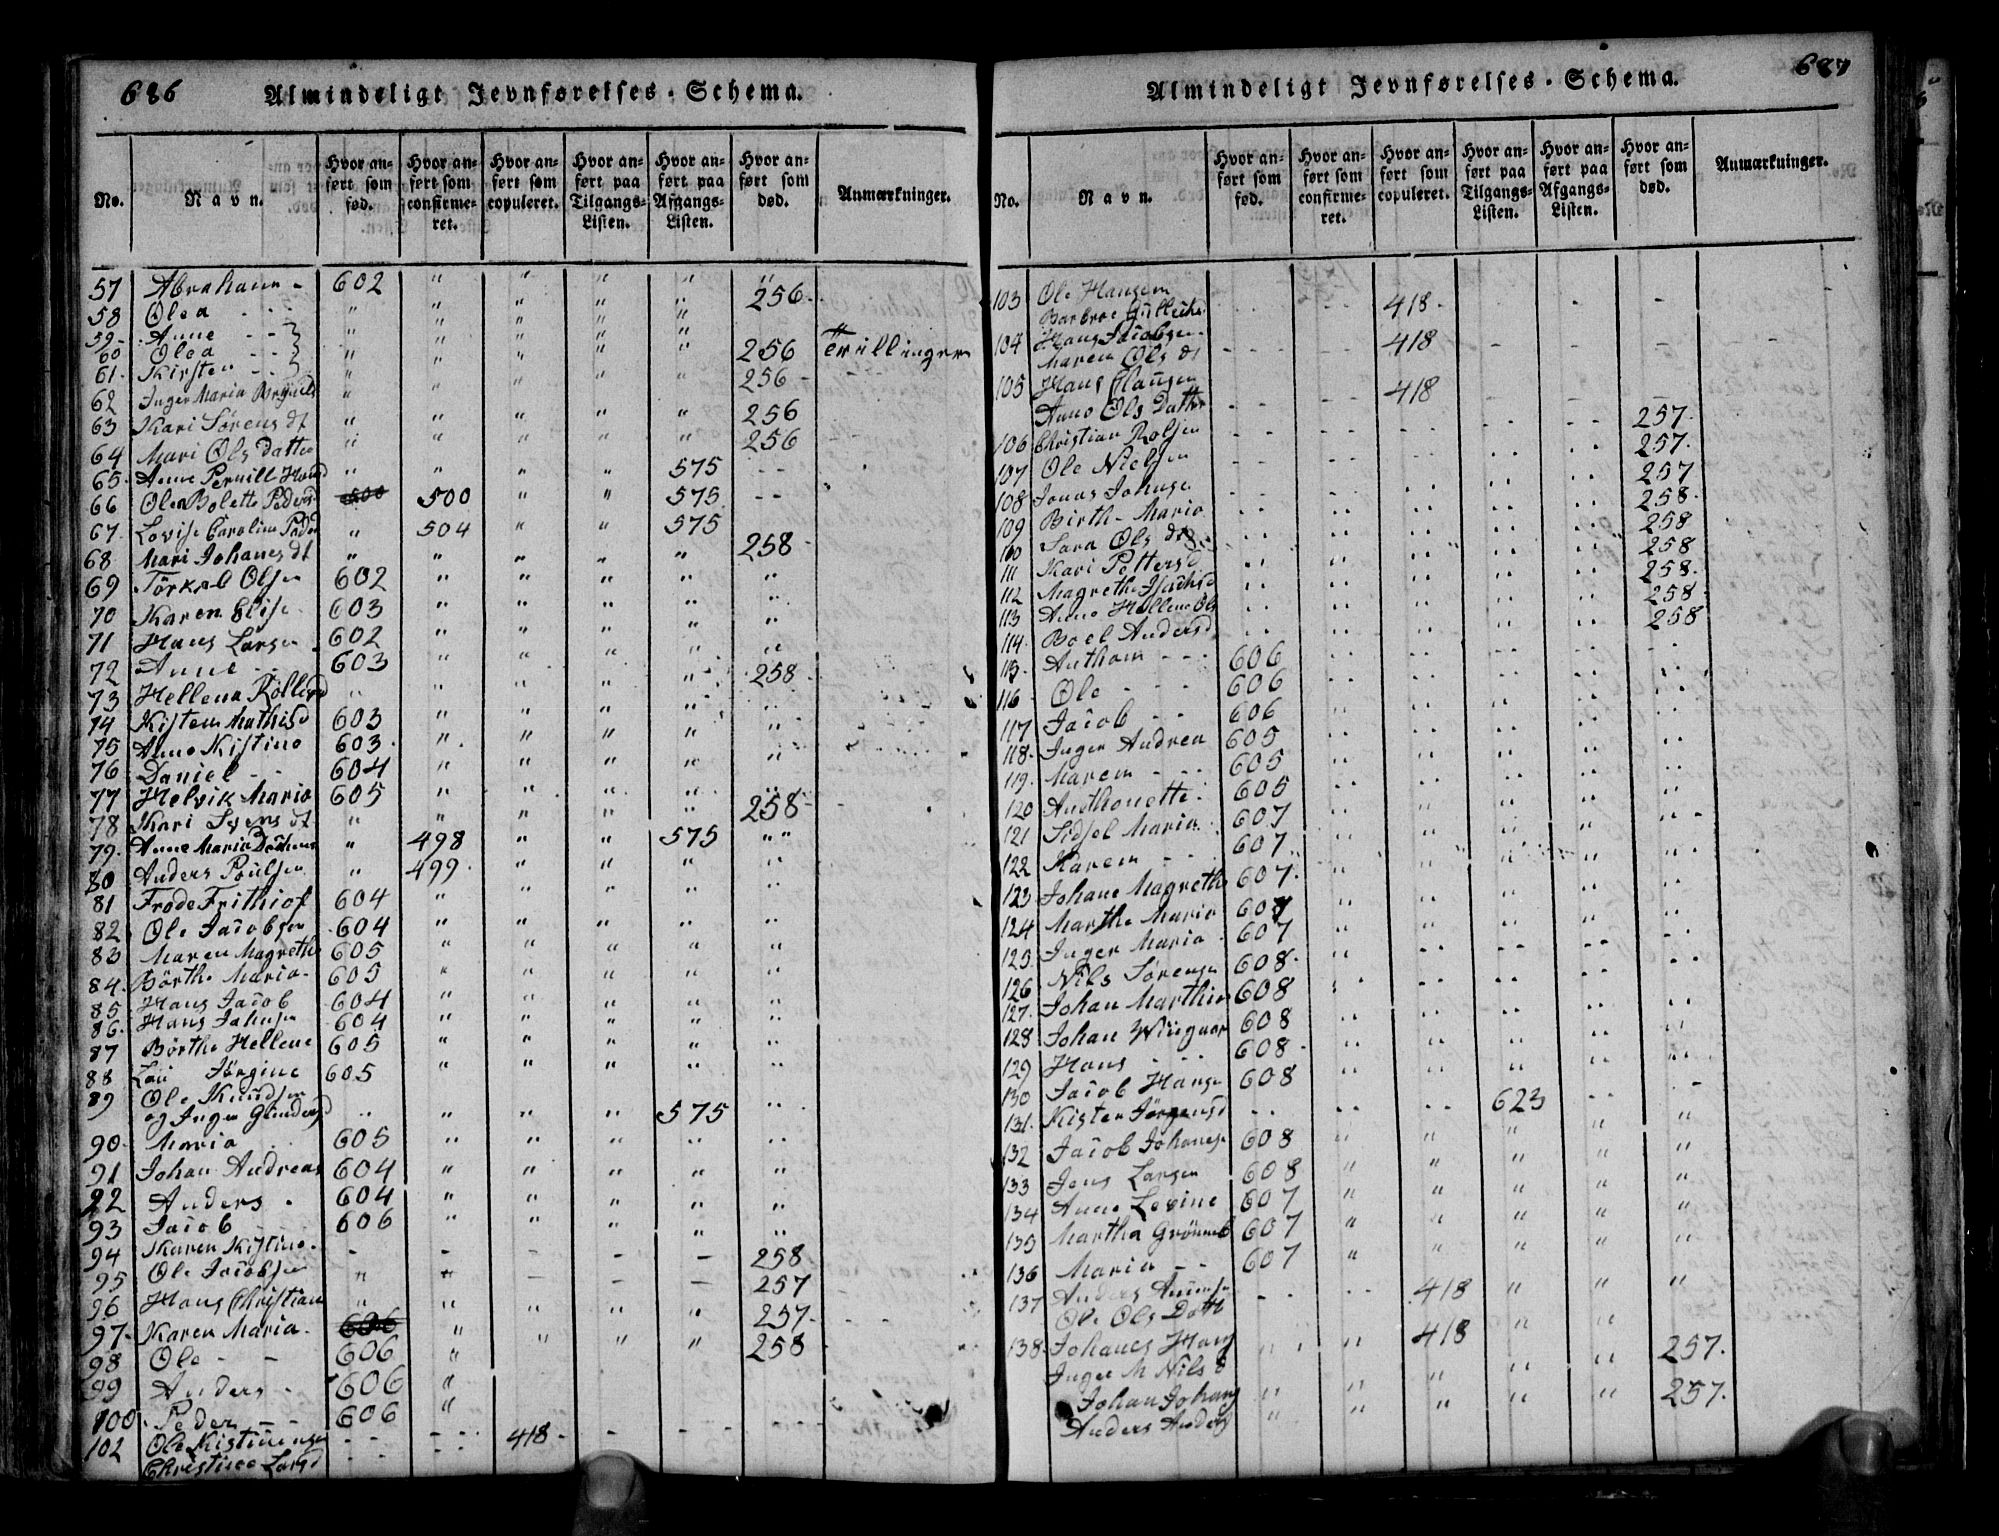 686 Almindeligt Jevnførelses-Schema.
No. Navn. Hvor anført som fød. Hvor anført som confirmeret. Hvor anført som copuleret. Hvor anført paa Tilgangs-Listen. Hvor anført paa Afgangs-Listen. Hvor anført som død. Anmærkninger.
57 Abraham - 602 " " " " "
58 Olea - - - " " " " " 256 -
59 - Anne - - " " " "
60 Olea - - " " " " " 256 Trillinger
61 - Kirsten - - " " " " 256 -
62 Inger Maria "
63 Kari Sörens dt " " " " " 256
64 Mari Ols datter " " " " " 256
65 - Anne Pernill " " " " 575 - -
66 Olea Bolette Peders 500 " " 575 - -
67 - Lovise Caroline Peders " 504 " " 575
68 - Mari Johanes dt " " " " " 258
69 Törkel Olsen 602 " " " " "
70 Karen Elise 603 " " " " "
71 Hans Larsen 602 " " " " "
72 Anne - - 603 " " " " "
73 Hellena " " " " " 258 -
74 Kisten Mathisd 603 " " " " "
75 Anne Kistine 603 - " " " " "
76 Daniel - - 604 " " " " "
77 Helvik Maria 605 " " " " "
78 Kari Svens dt " " " " " 258 -
79 - Anne Maria " 498 " " 575 " "
80 Anders Poulsen " 499 - " " " "
81 Frode Frithiof 604 " " " " "
82 Ole Jacobsen 604 " " " " "
83 Maren Magrethe 605 " " " " "
84 - Börthe Maria - 605 " " " " "
85 - Hans Jacob 604 " " " " "
86 - Hans Johnsen 604 " " " " "
87 Börthe Hellene 605 " " " " "
88 Jörgine 605 " " " " "
89 Ole Knudsen
og Inger Gundersd " " " " 575 "
90 - Maria 605 " " " " "
91 Johan Andreas 604 " " " " "
92 Anders - 604 " " " " "
93 Jacob 606 " " " " "
94 Karen Kistine - - - - - - 258
95 Ole Jacobsen " " - - - 257
96 Hans Christian " " " " " 257 -
97 - Karen Maria - " " " " 258
98 Ole - - 606 "
99 Anders - 606 "
100 - Peder - - 606 "
102 Ole Kistensen - - - - 418 - - - - - -
Christine Larsd
687
Almindeligt Jevnførelses-Schema.
No. Navn. Hvor anført som fød. Hvor anført som confirmeret. Hvor anført som copuleret. Hvor anført paa Tilgangs-Listen. Hvor anført paa Afgangs-Listen. Hvor anført som død. Anmærkninger.
103 Ole Hansen 418 -
Barbroe
104 Hans Jacobsen 418
Maren Ols dt
105 Hans Clausen 418
Anne Ols Datter
106 Christian 257 -
107 Ole Nielsen 257 -
108 Jonas Johnsen 257
109 Birthe Maria 258 -
110 Sara Ols dt 258
111 Kari Pettersd 258
112 Magrethe 258 -
113 Anne Hellene Ols 258 -
114 - Boel Andersd 258
115 - Anthon - - - 606
116 - Ole - - - 606
117 Jacob - - 606
118 - Inger Andrea 605
119 - Maren - - - 605
120 Anthonette - 605
121 Sidsel Maria - 607
122 Karen - - 607
123 Johane Magrethe 607 -
124 Marthe Maria 607
125 Inger Maria 607
126 Nils Sörensen 608 -
127 - Johan Marthin 608
128 Johan 608
129 Hans - - - 608 -
130 Jacob Hansen 608
131 - Kisten Jörgensd 623
132 Jacob Johanes 608
133 Jens Larsen 608
134 Anne Lovine 607
135 Martha 607
136 Maria - - 607
137 Anders 418
Ole Ols Datt
138 - Johanes Hans 418
Inger M Nils d 257 -
Johan Johans
Anders Anders 257 -